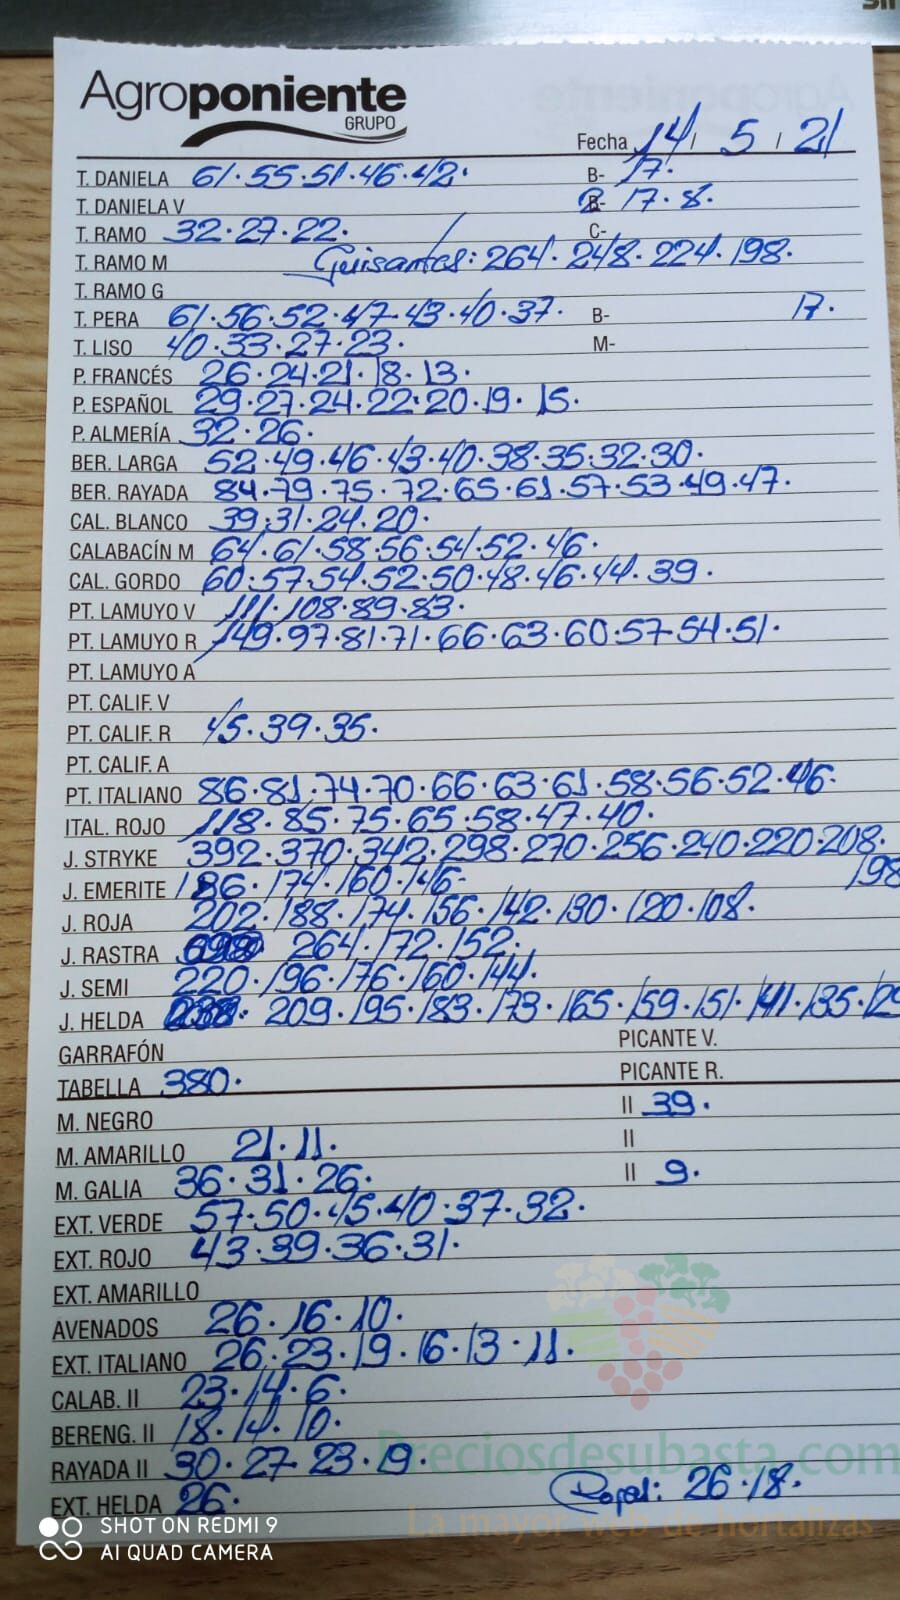 Agroponiente
GRUPO
Fecha 14 / 5 / 21
T. DANIELA 61·55·51·46·42· B- 17·
T. DANIELA V B- 17·8·
T. RAMO 32·27·22· C-
T. RAMO M Guisantes: 264·248·224·198·
T. RAMO G
T. PERA 61·56·52·47·43·40·37· B- 17·
T. LISO 40·33·27·23· M-
P. FRANCÉS 26·24·21·18·13·
P. ESPAÑOL 29·27·24·22·20·19·15·
P. ALMERÍA 32·26·
BER. LARGA 52·49·46·43·40·38·35·32·30·
BER. RAYADA 84·79·75·72·65·61·57·53·49·47·
CAL. BLANCO 39·31·24·20·
CALABACÍN M 64·61·58·56·54·52·46·
CAL. GORDO 60·57·54·52·50·48·46·44·39·
PT. LAMUYO V 111·108·89·83·
PT. LAMUYO R 149·97·81·71·66·63·60·57·54·51·
PT. LAMUYO A
PT. CALIF. V
PT. CALIF. R 45·39·35·
PT. CALIF. A
PT. ITALIANO 86·81·74·70·66·63·61·58·56·52·46·
ITAL. ROJO 118·85·75·65·58·47·40·
J. STRYKE 392·370·342·298·270·256·240·220·208·
198
J. EMERITE 186·174·160·146·
J. ROJA 202·188·174·156·142·130·120·108·
J. RASTRA 264·172·152·
J. SEMI 220·196·176·160·144·
J. HELDA 209·195·183·173·165·159·151·141·135·129
GARRAFÓN PICANTE V.
TABELLA 380· PICANTE R.
M. NEGRO II 39·
M. AMARILLO 21·11· II
M. GALIA 36·31·26· II 9·
EXT. VERDE 57·50·45·40·37·32·
EXT. ROJO 43·39·36·31·
EXT. AMARILLO
AVENADOS 26·16·10·
EXT. ITALIANO 26·23·19·16·13·11·
CALAB. II 23·14·6·
BERENG. II 18·14·10·
Preciosdesubasta.com
RAYADA II 30·27·23·19·
EXT. HELDA 26· 26·18·
La mayor web de hortalizas
SHOT ON REDMI 9
AI QUAD CAMERA